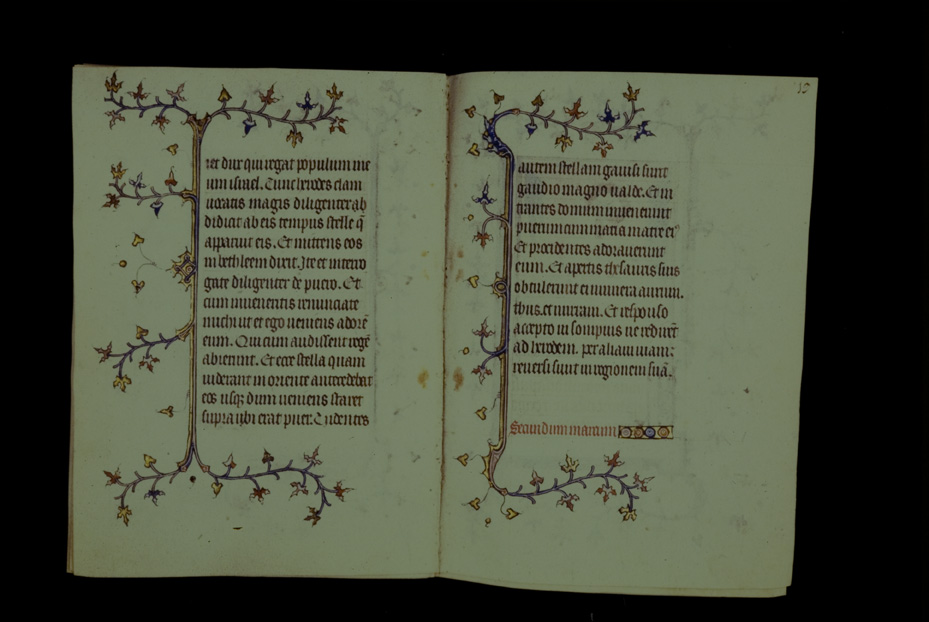 iet dux qui regat populum me
um israel. Tunc herodes clam
uocatis magis diligenter ab
didicit ab eis tempus stelle q̄
apparuit eis. Et mittens eos
in bethleem dixit. Ite et interro
gate diligenter de puero. Et
cum inueneritis renunciate
michi ut et ego ueniens adorē
eum. Qui cum audissent regē
abierunt. Et ecce stella quam
uiderant in oriente antecedebat
eos usq; dum ueniens staret
supra ubi erat puer. Uidentes
13
autem stellam gauisi sunt
gaudio magno ualde. Et in
trantes domum inuenerunt
puerum cum maria matre eiꝰ
Et procidentes adorauerunt
eum. Et apertis thesauris suis
obtulerunt ei munera aurum.
thus. et mirram. Et responso
accepto in sompnis ne redirēt
ad herodem. per aliam uiam:
reuersi sunt in regionem suā.
Secundum marcum